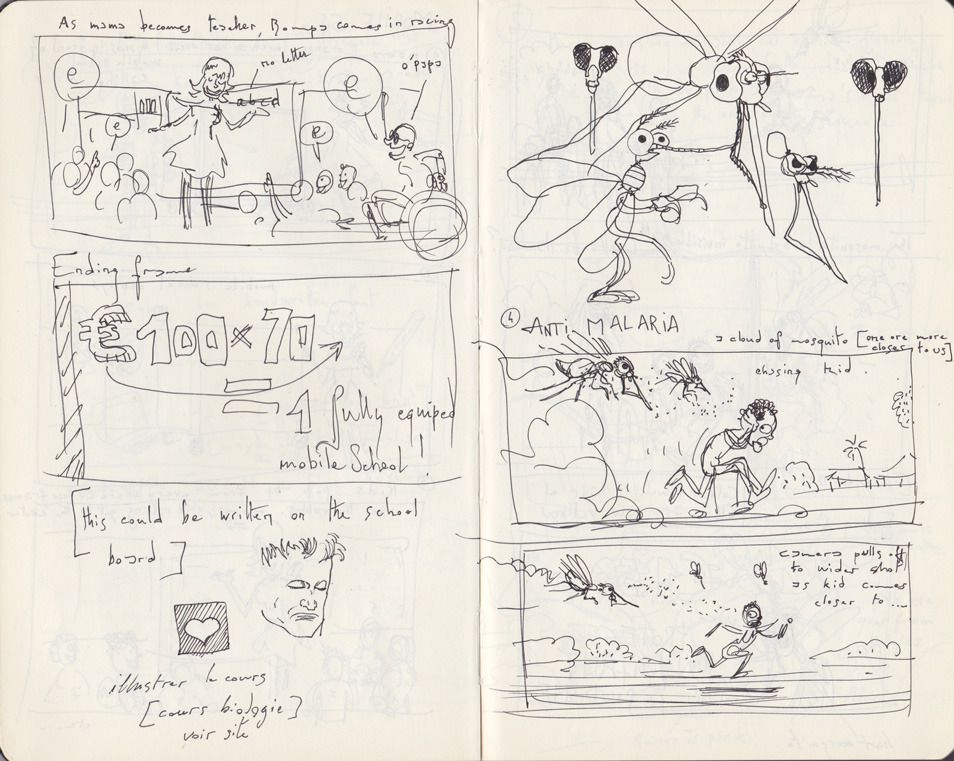 As mama becomes teacher, Bompa comes in racing
e
no letter
e
o'papa
abcd
e
e
Ending frame
€ 100 x 70
= 1 fully equiped
mobile School !
[this could be written on the school
board]
illustrer le cours
[cours biologie]
voir site
4 ANTI-MALARIA
a cloud of mosquito [one are more
closer to us]
chasing kid.
camera pulls off
to wider shot
as kid comes
closer to ...